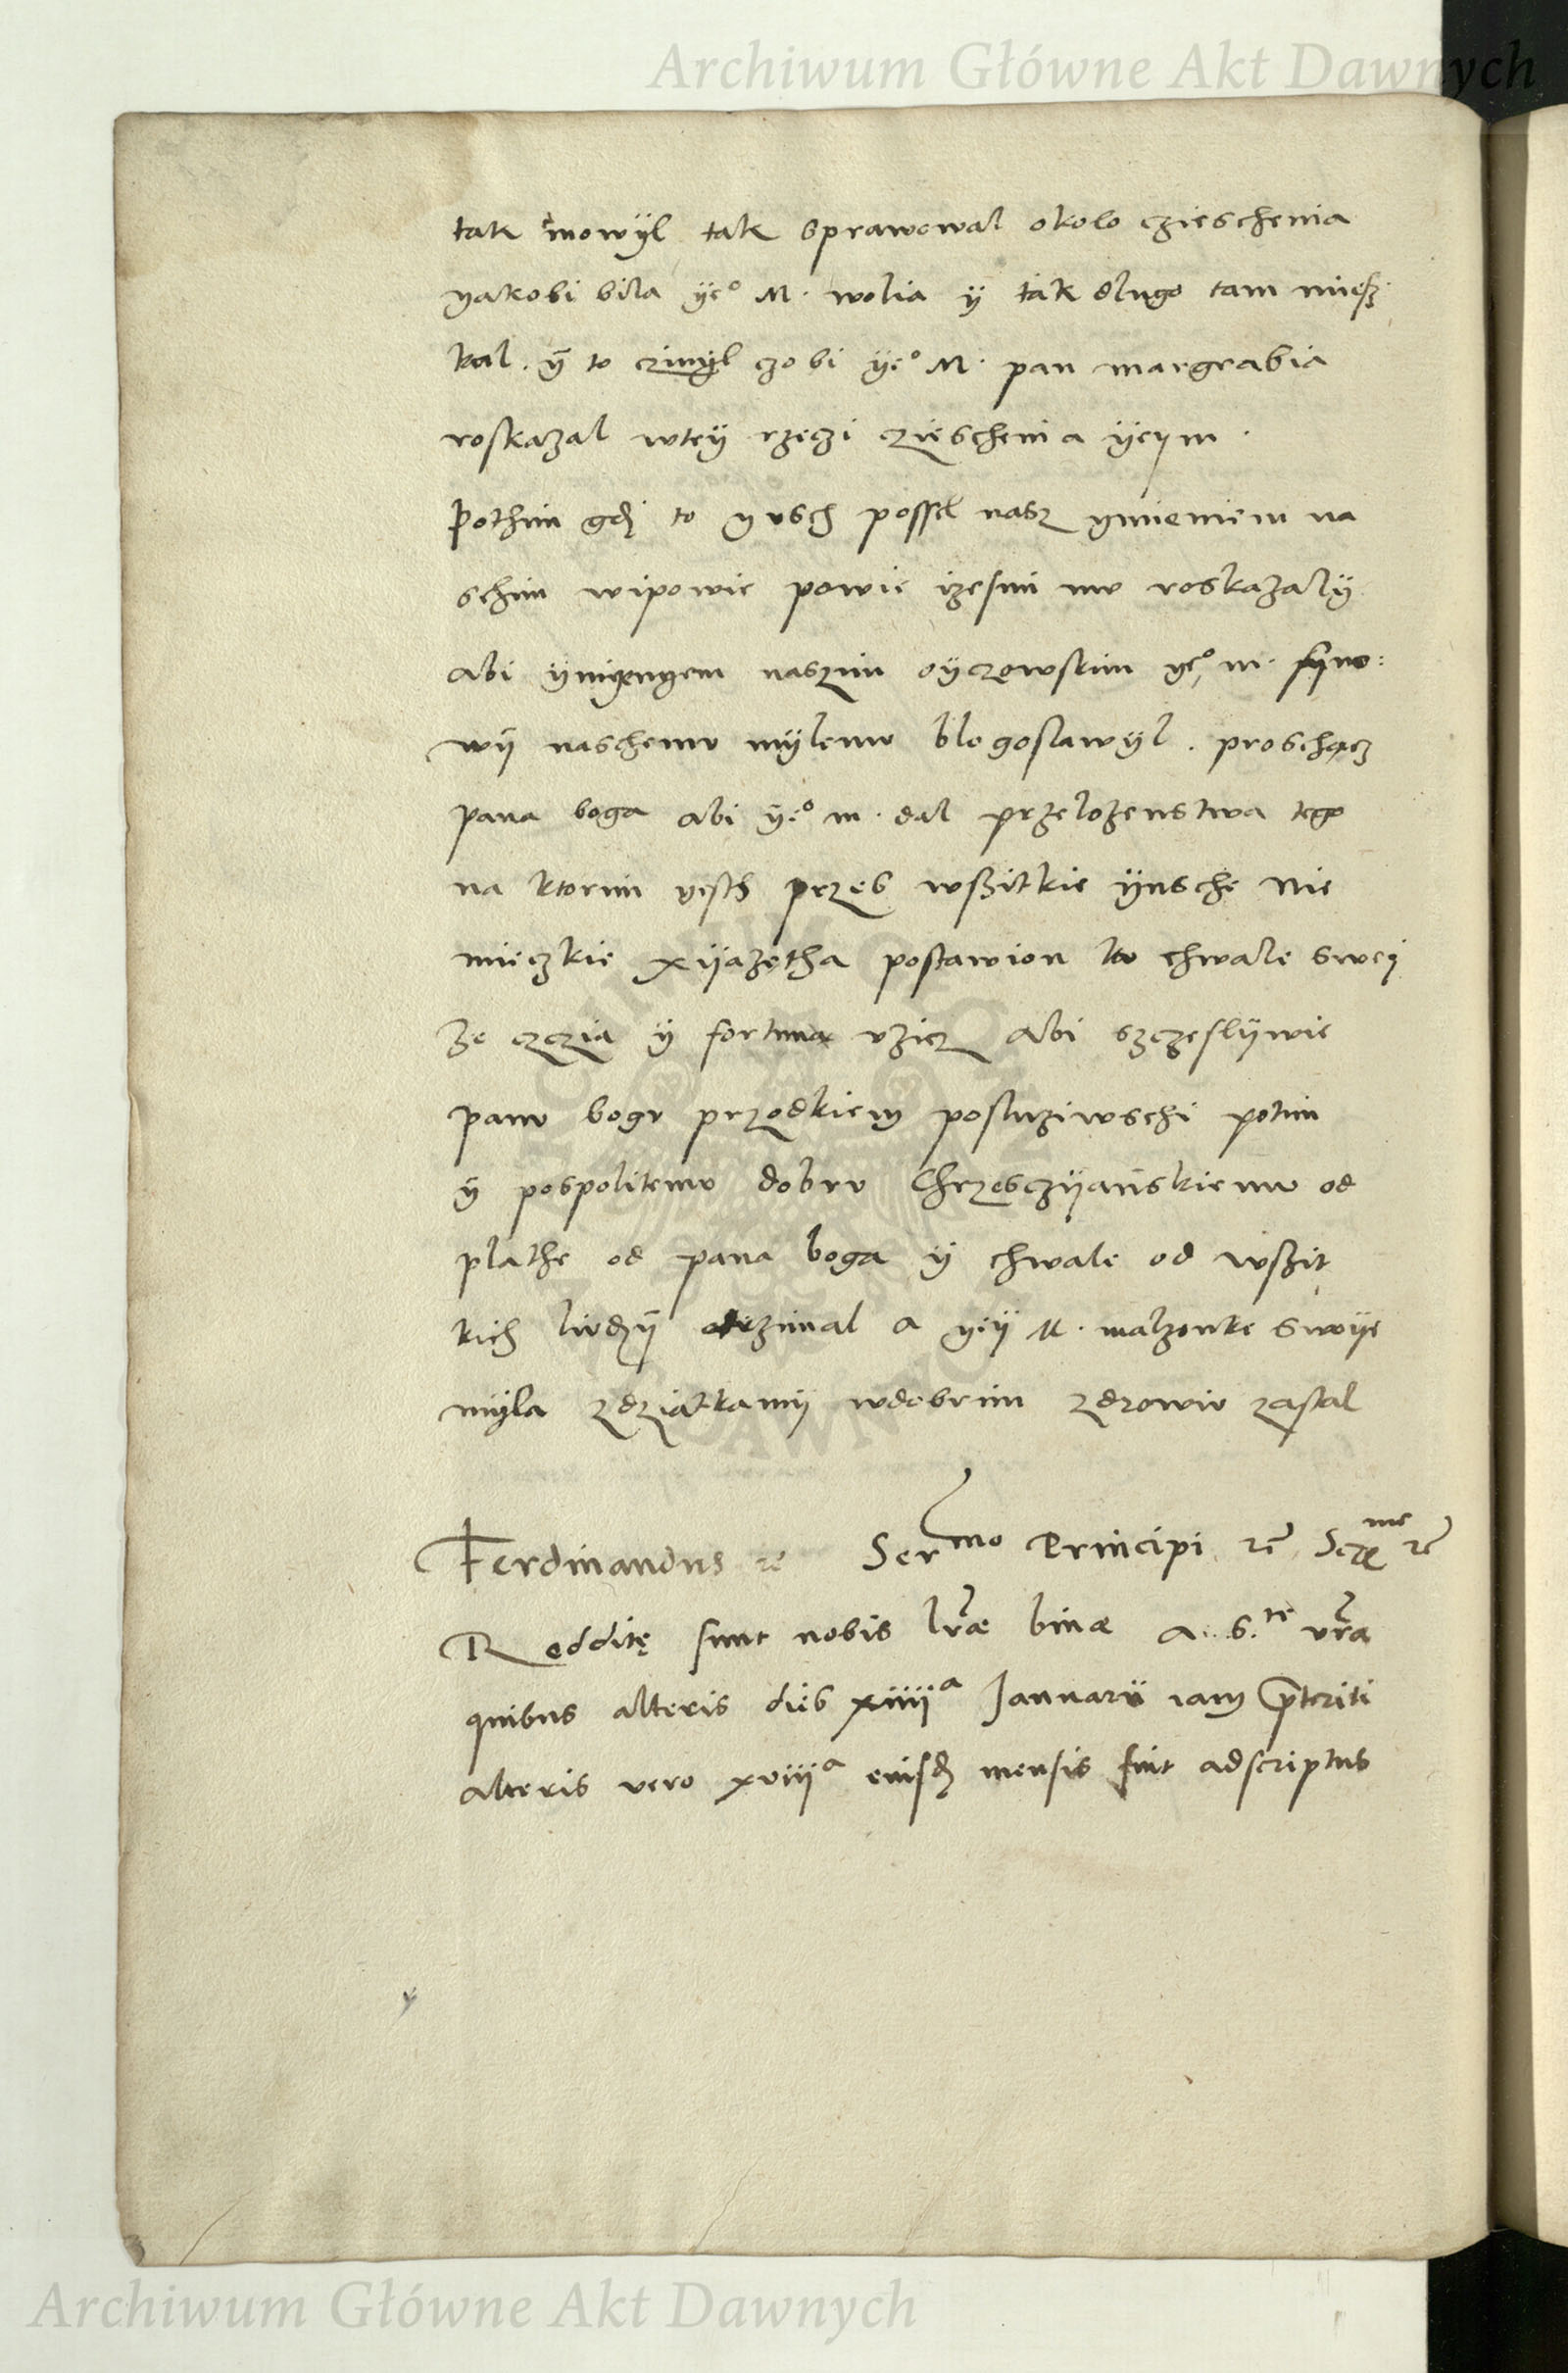 Archiwum Główne Akt Dawnych
tak mowÿl tak sprawowal okolo czieschenia
yakobi bila ÿe° M. wolia ÿ tak dlugo tam miesz
kal. ÿ to czinÿl czo bi ÿe° M. pan margrabia
roskazal wteÿ rzeczi czieschenia ÿeym.
Pothim gdj to yusch possel nasz ymieniem na
schim wipowie powie izesmi mv roskazalÿ
abi ÿmÿenyem naszim oÿczowskim ye° m. syno:
wÿ naschemv mÿlemv blogoslawÿl. proschącz
pana boga abi ÿe° m. dal przelozenstwa tego
na ktorim yesth przes wßitkie ÿnsche nie
mieczkie xÿazętha postawion kv chwale swej
ze czczia ÿ fortuna vzicz abi szczeslÿwie
panv bogv przodkiem posluziwschi potim
ÿ pospolitemv dobrv Chrzesczÿanskiemv od
plathe od pana boga ÿ chwale od wßit
kich ludzÿ otrzimal a yeÿ M. malzonke swoÿe
mÿla zdziatkamÿ wdobrim zdrowiv zastal
Ferdinandus re Ser^mo Principi re Ser^me re
Redditę sunt nobis lr̃ae binae a. S.^te vr̃a
quibus alteris dies xiiii^a Januarii iam p̃teriti
alteris vero xviii^a eiusdẽ mensis fuit adscriptus
Archiwum Główne Akt Dawnych